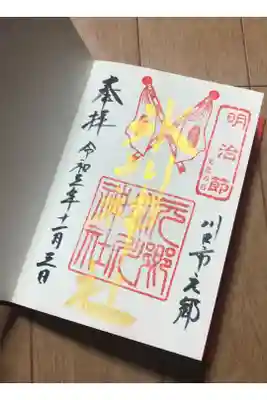 明治節
川口市元郷
氷川
元郷
氷川
神社
奉拝
令和三年十一月三日